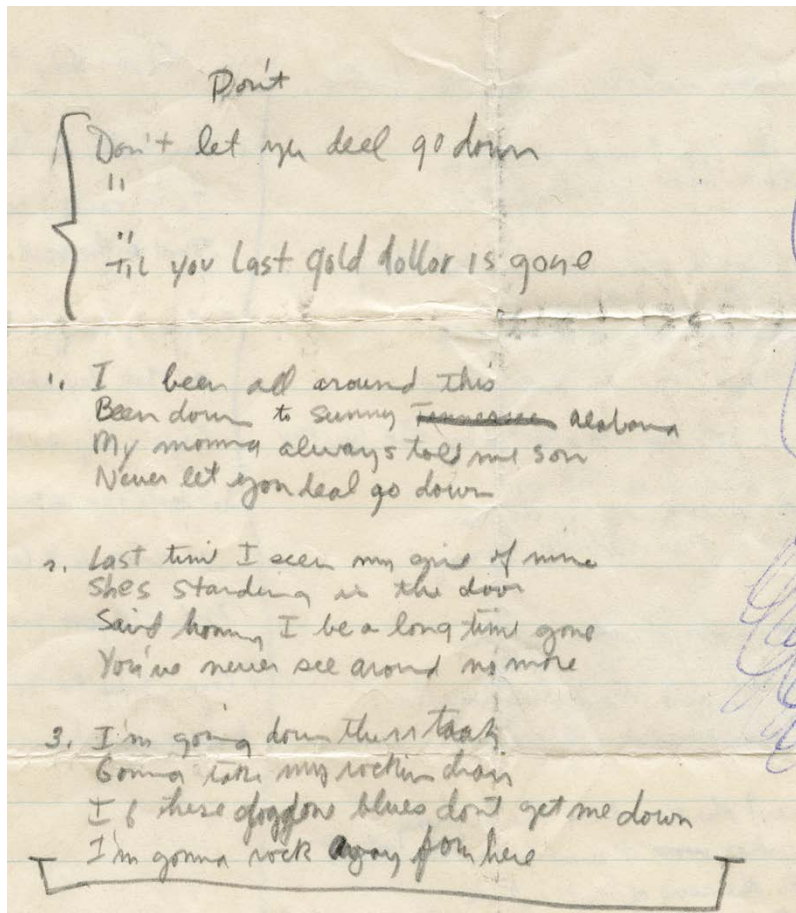 Don't
Don't let you deal go down
"
"
Til you last gold dollar is gone
1. I been all around this
Been down to sunny Tennessee Alabama
My momma always told me son
Never let you deal go down
2. Last time I seen my girl of mine
Shes standing in the door
Said honny I be a long time gone
You've never see around no more
3. I'm going down theses track
Gonna take my rockin chair
If these doggone blues dont get me down
I'm gonna rock away from here